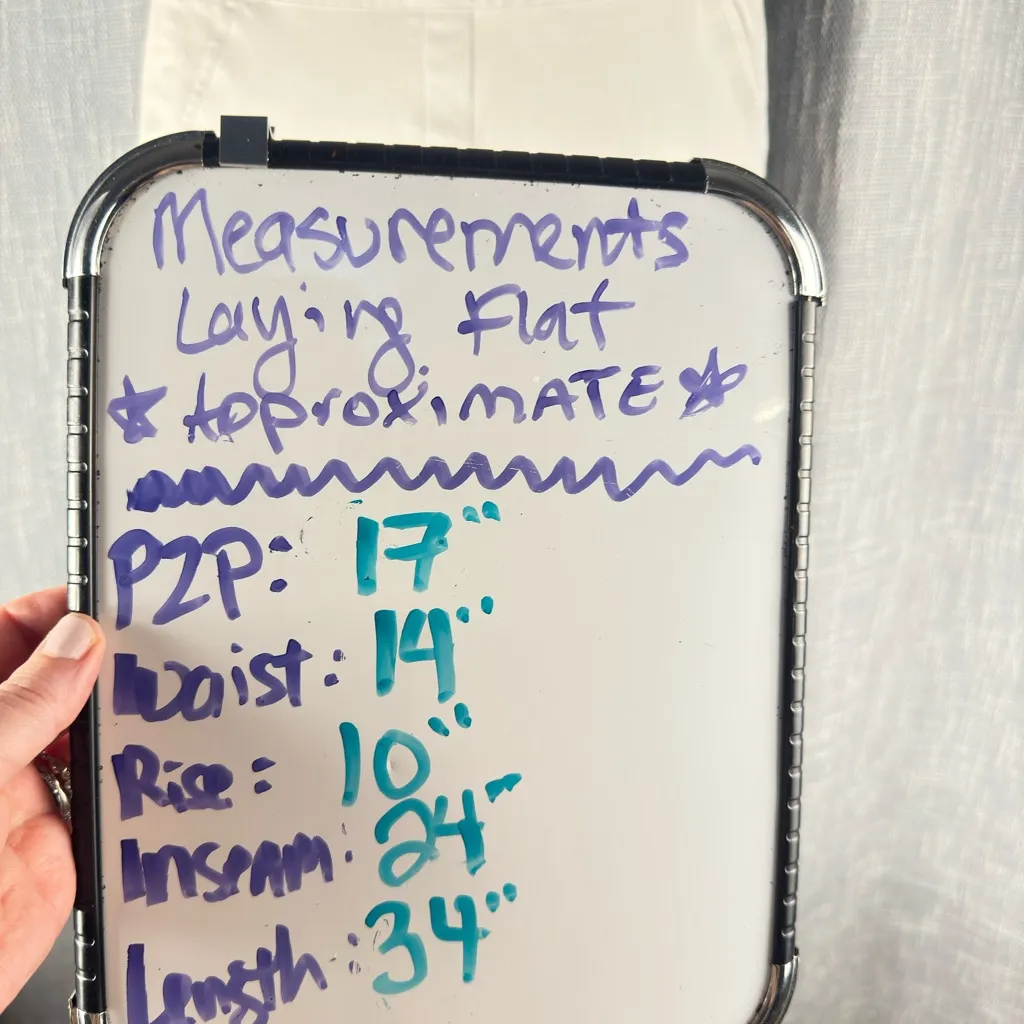 Measurements
Laying Flat
☆ ApproxiMATE ☆
P2P: 17"
Waist: 14"
Rise: 10"
Inseam: 24"
Length: 34"